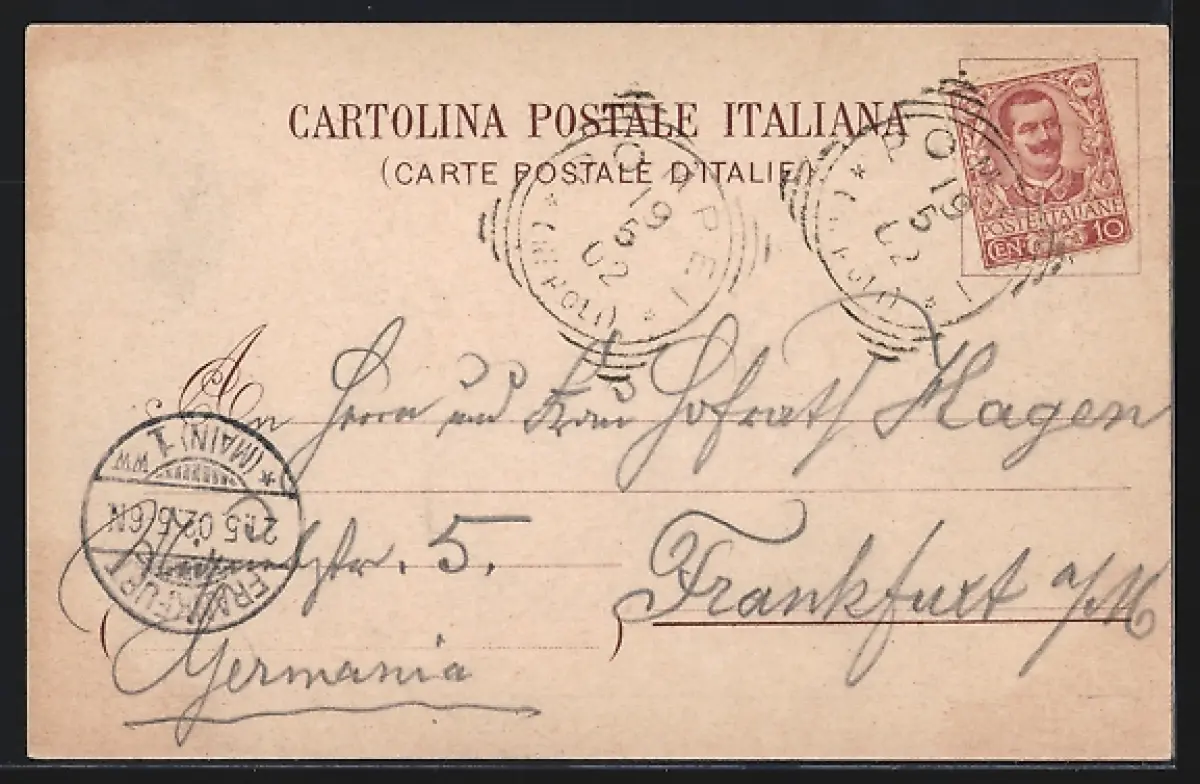 CARTOLINA POSTALE ITALIANA
(CARTE POSTALE D'ITALIE)
POSTE ITALIANE
CEN 10
POMPEI
19
5
02
(NAPOLI)
POMPEI
19
5
02
(NAPOLI)
An Herrn und Frau Hofrath Hagen
str. 5.
Frankfurt a/M
Germania
FRANKFURT
21.5.02. 5-6N.
* (MAIN) 1
WW